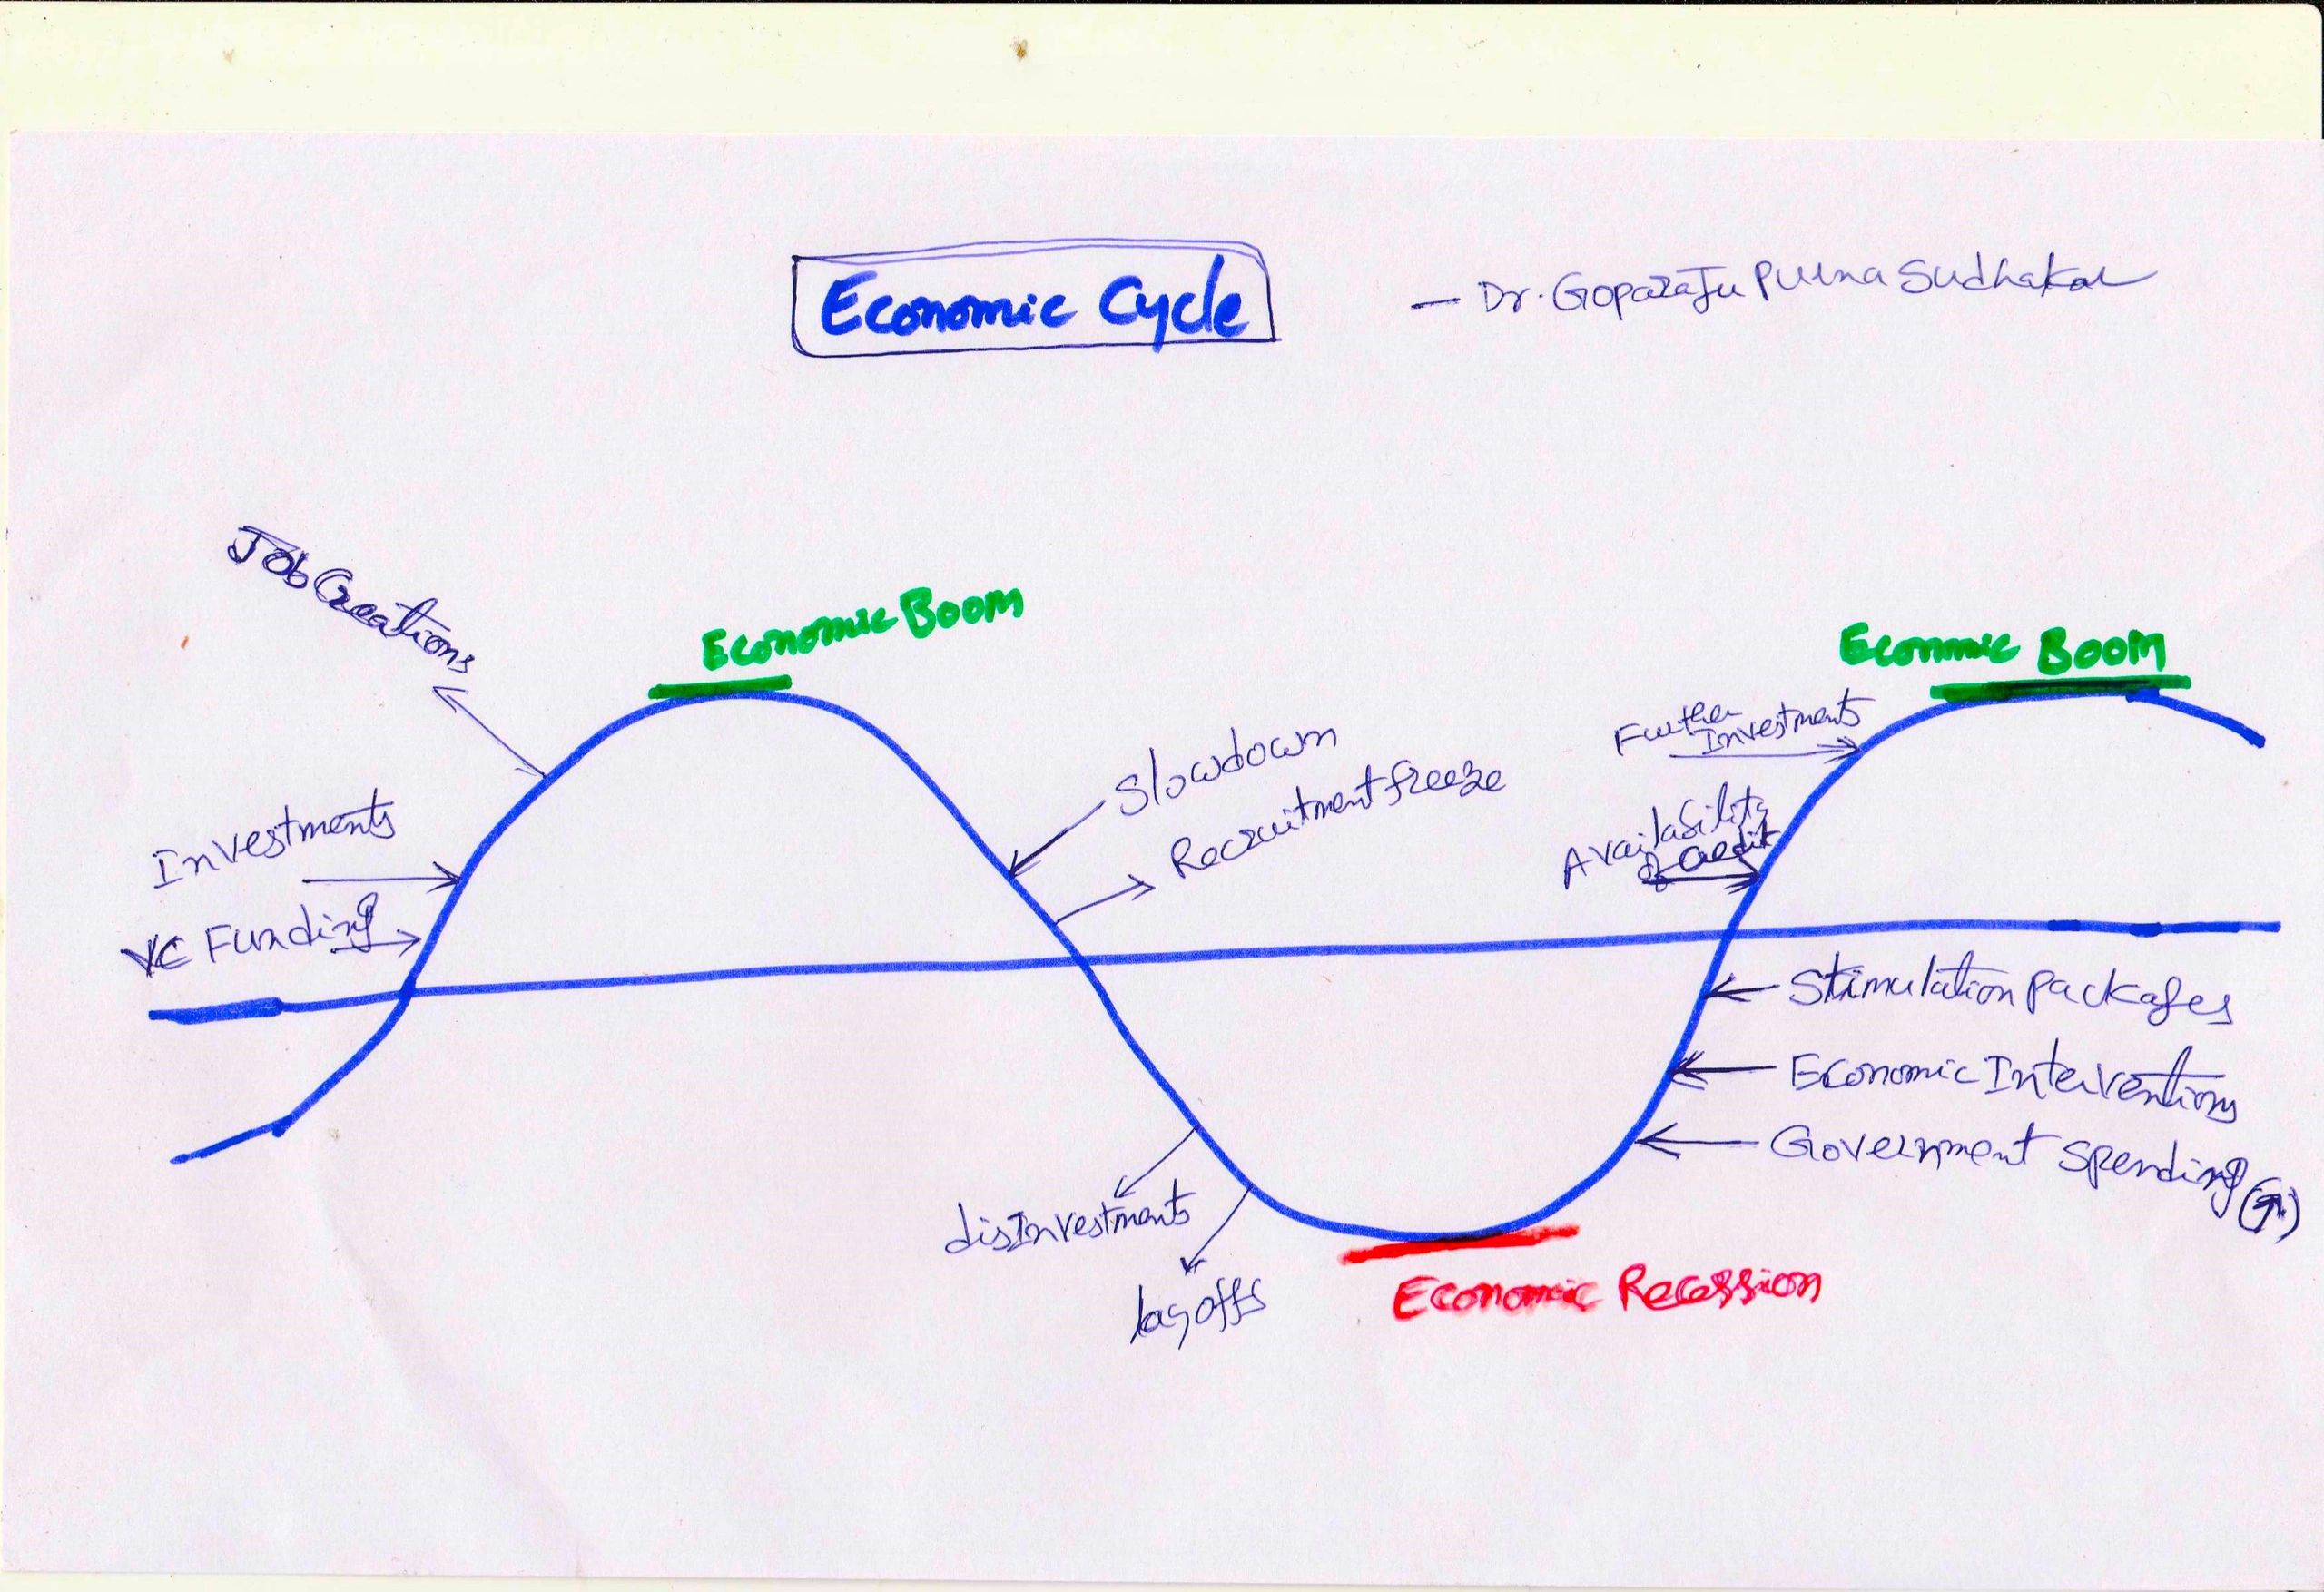 Economic Cycle
— Dr. Goparaju Purna Sudhakar
Job Creations
Economic Boom
Econmic Boom
Further
Investments
Slowdown
Recruitment freeze
Investments
Availability
of Credit
VC Funding
Stimulation packages
Economic Interventions
Government Spending (↑)
disInvestments
layoffs
Economic Recession